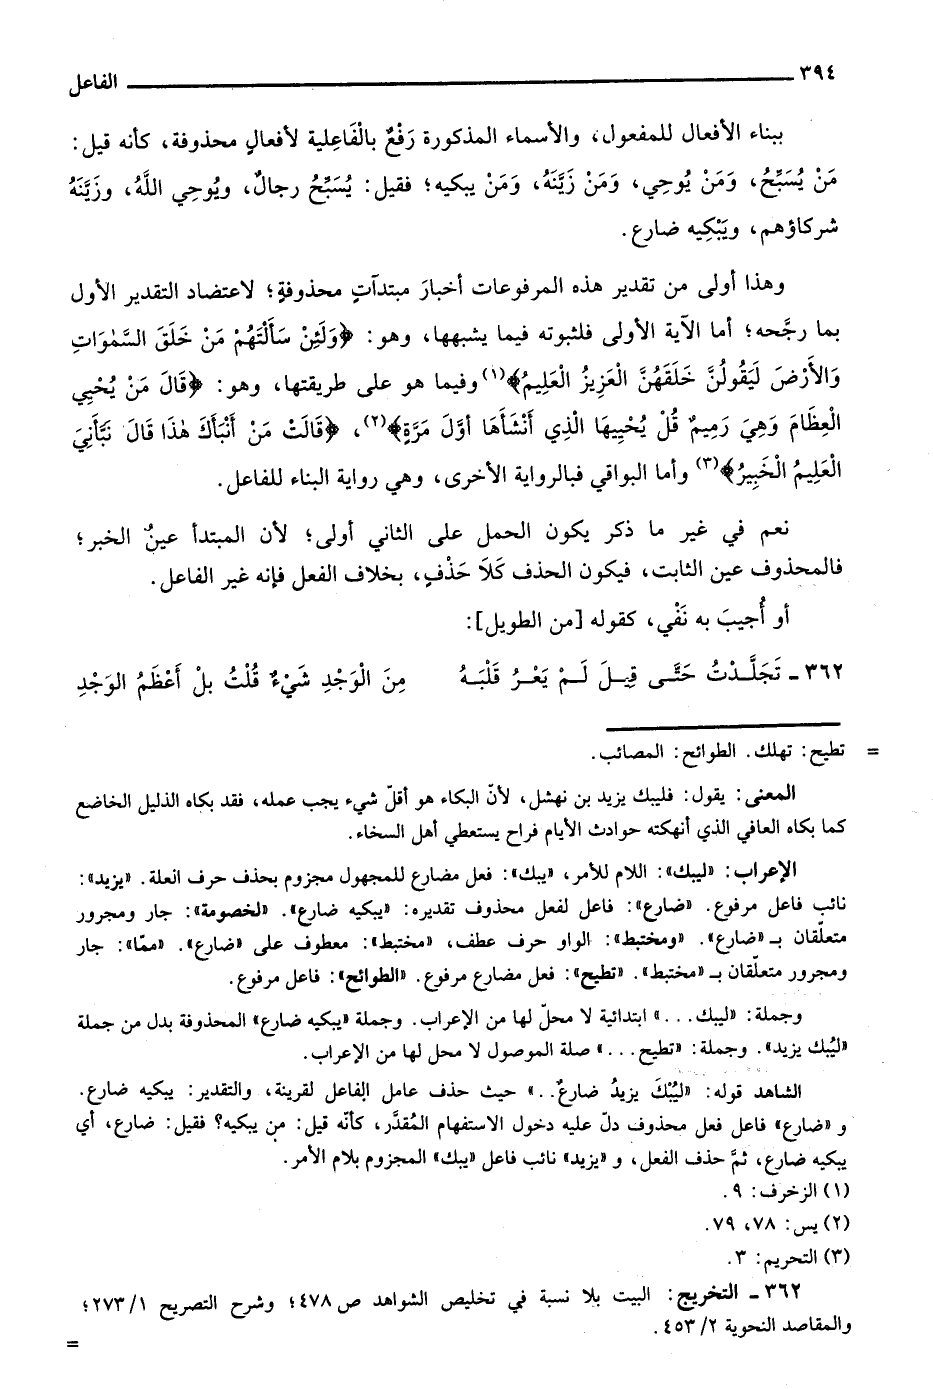 ٣٩٤ الفاعل
ببناء الأفعال للمفعول، والأسماء المذكورة رَفْعٌ بالْفَاعِلية لأفعالٍ محذوفة، كأنه قيل:
مَنْ يُسَبِّحُ، وَمَنْ يُوحِي، وَمَنْ زَيَّنَهُ، وَمَنْ يبكيه؛ فقيل: يُسَبِّحُ رجالٌ، ويُوحِي اللَّهُ، وزَيَّنَهُ
شركاؤهم، ويَبْكِيه ضارع.
وهذا أولى من تقدير هذه المرفوعات أخبارَ مبتدآتٍ محذوفةٍ؛ لاعتضاد التقدير الأول
بما رجَّحه؛ أما الآية الأولى فلثبوته فيما يشبهها، وهو: ﴿وَلَئِنْ سَأَلْتَهُمْ مَنْ خَلَقَ السَّمٰوَاتِ
وَالأَرْضَ لَيَقُولُنَّ خَلَقَهُنَّ الْعَزِيزُ الْعَلِيمُ﴾(١) وفيما هو على طريقتها، وهو: ﴿قَالَ مَنْ يُحْيِي
الْعِظَامَ وَهِيَ رَمِيمٌ قُلْ يُحْيِيهَا الَّذِي أَنْشَأَهَا أوَّلَ مَرَّةٍ﴾(٢)، ﴿قَالَتْ مَنْ أَنْبَأَكَ هٰذَا قَالَ نَبَّأَنِيَ
الْعَلِيمُ الْخَبِيرُ﴾(٣) وأما البواقي فبالرواية الأخرى، وهي رواية البناء للفاعل.
نعم في غير ما ذكر يكون الحمل على الثاني أولى؛ لأن المبتدأ عينُ الخبر؛
فالمحذوف عين الثابت، فيكون الحذف كَلاَ حَذْفٍ، بخلاف الفعل فإنه غير الفاعل.
أو أُجيبَ به نَفْي، كقوله [من الطويل]:
٣٦٢ ـ تَجَلَّدْتُ حَتَّى قِيلَ لَمْ يَعْرُ قَلْبَهُ مِنَ الْوَجْدِ شَيْءٌ قُلْتُ بلْ أَعْظَمُ الوَجْدِ
= تطيح: تهلك. الطوائح: المصائب.
المعنى: يقول: فليبك يزيد بن نهشل، لأنّ البكاء هو أقلّ شيء يجب عمله، فقد بكاه الذليل الخاضع
كما بكاه العافي الذي أنهكته حوادث الأيام فراح يستعطي أهل السخاء.
الإعراب: «ليبك»: اللام للأمر، «يبك»: فعل مضارع للمجهول مجزوم بحذف حرف العلة. «يزيد»:
نائب فاعل مرفوع. «ضارع»: فاعل لفعل محذوف تقديره: «يبكيه ضارع». «لخصومة»: جار ومجرور
متعلّقان بـ «ضارع». «ومختبط»: الواو حرف عطف، «مختبط»: معطوف على «ضارع». «ممّا»: جار
ومجرور متعلّقان بـ «مختبط». «تطيح»: فعل مضارع مرفوع. «الطوائح»: فاعل مرفوع.
وجملة: «ليبك...» ابتدائية لا محلّ لها من الإعراب. وجملة «يبكيه ضارع» المحذوفة بدل من جملة
«ليُبك يزيد». وجملة: «تطيح...» صلة الموصول لا محل لها من الإعراب.
الشاهد قوله: «ليُبْكَ يزيدُ ضارعٌ..» حيث حذف عامل الفاعل لقرينة، والتقدير: يبكيه ضارع.
و «ضارع» فاعل فعل محذوف دلّ عليه دخول الاستفهام المُقدَّر، كأنّه قيل: من يبكيه؟ فقيل: ضارع، أي
يبكيه ضارع، ثمَّ حذف الفعل، و «يزيد» نائب فاعل «يبك» المجزوم بلام الأمر.
(١) الزخرف: ٩.
(٢) يس: ٧٨، ٧٩.
(٣) التحريم: ٣.
٣٦٢ ـ التخريج: البيت بلا نسبة في تخليص الشواهد ص٤٧٨؛ وشرح التصريح ٢٧٣/١؛
والمقاصد النحوية ٤٥٣/٢.
=